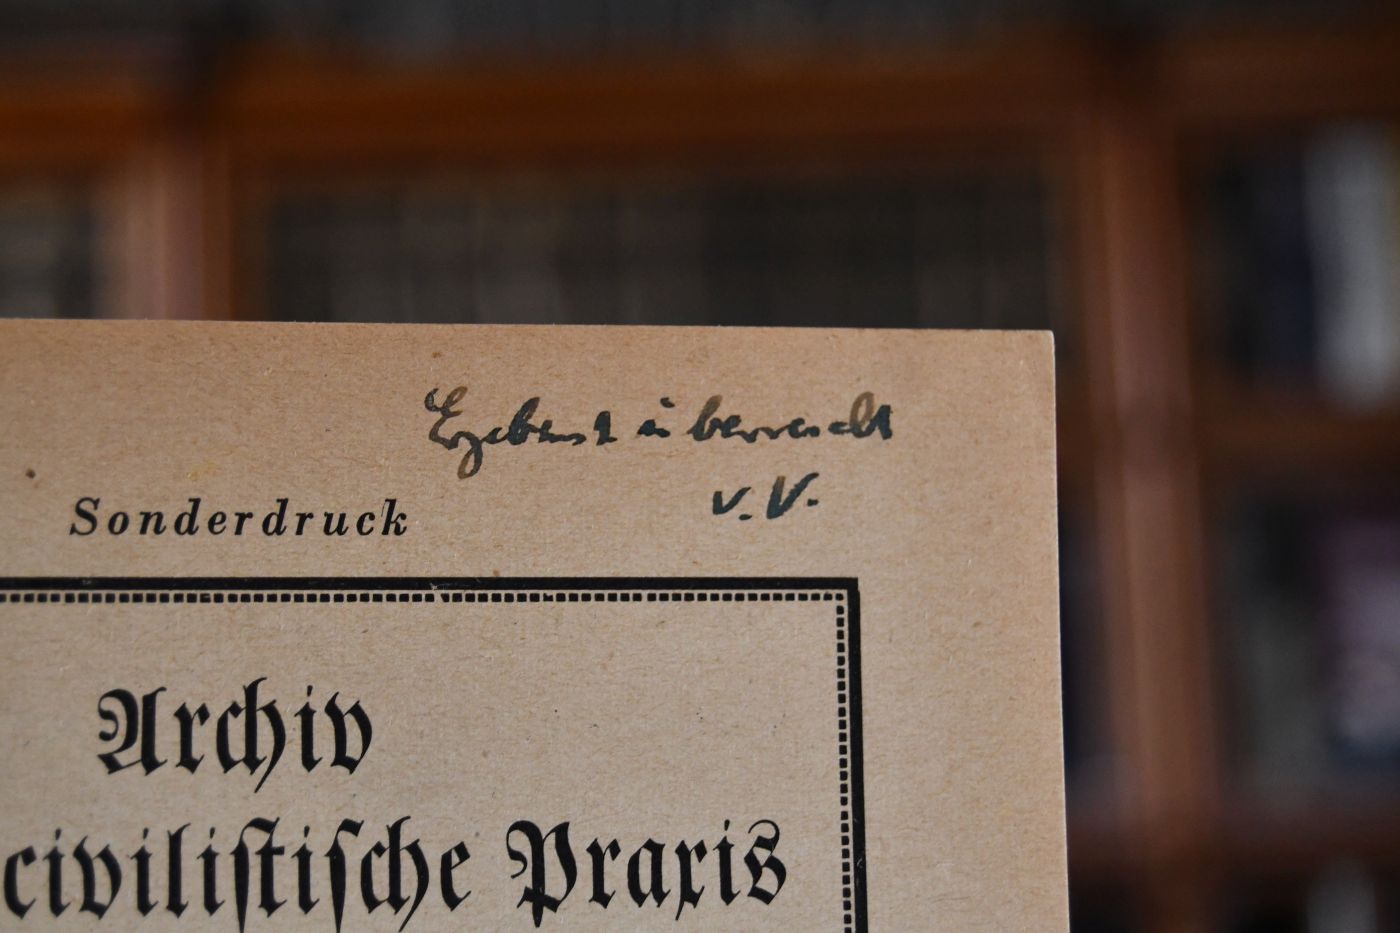 Ergebenst überreicht
v. V.
Sonderdruck
Archiv
civilistische Praxis